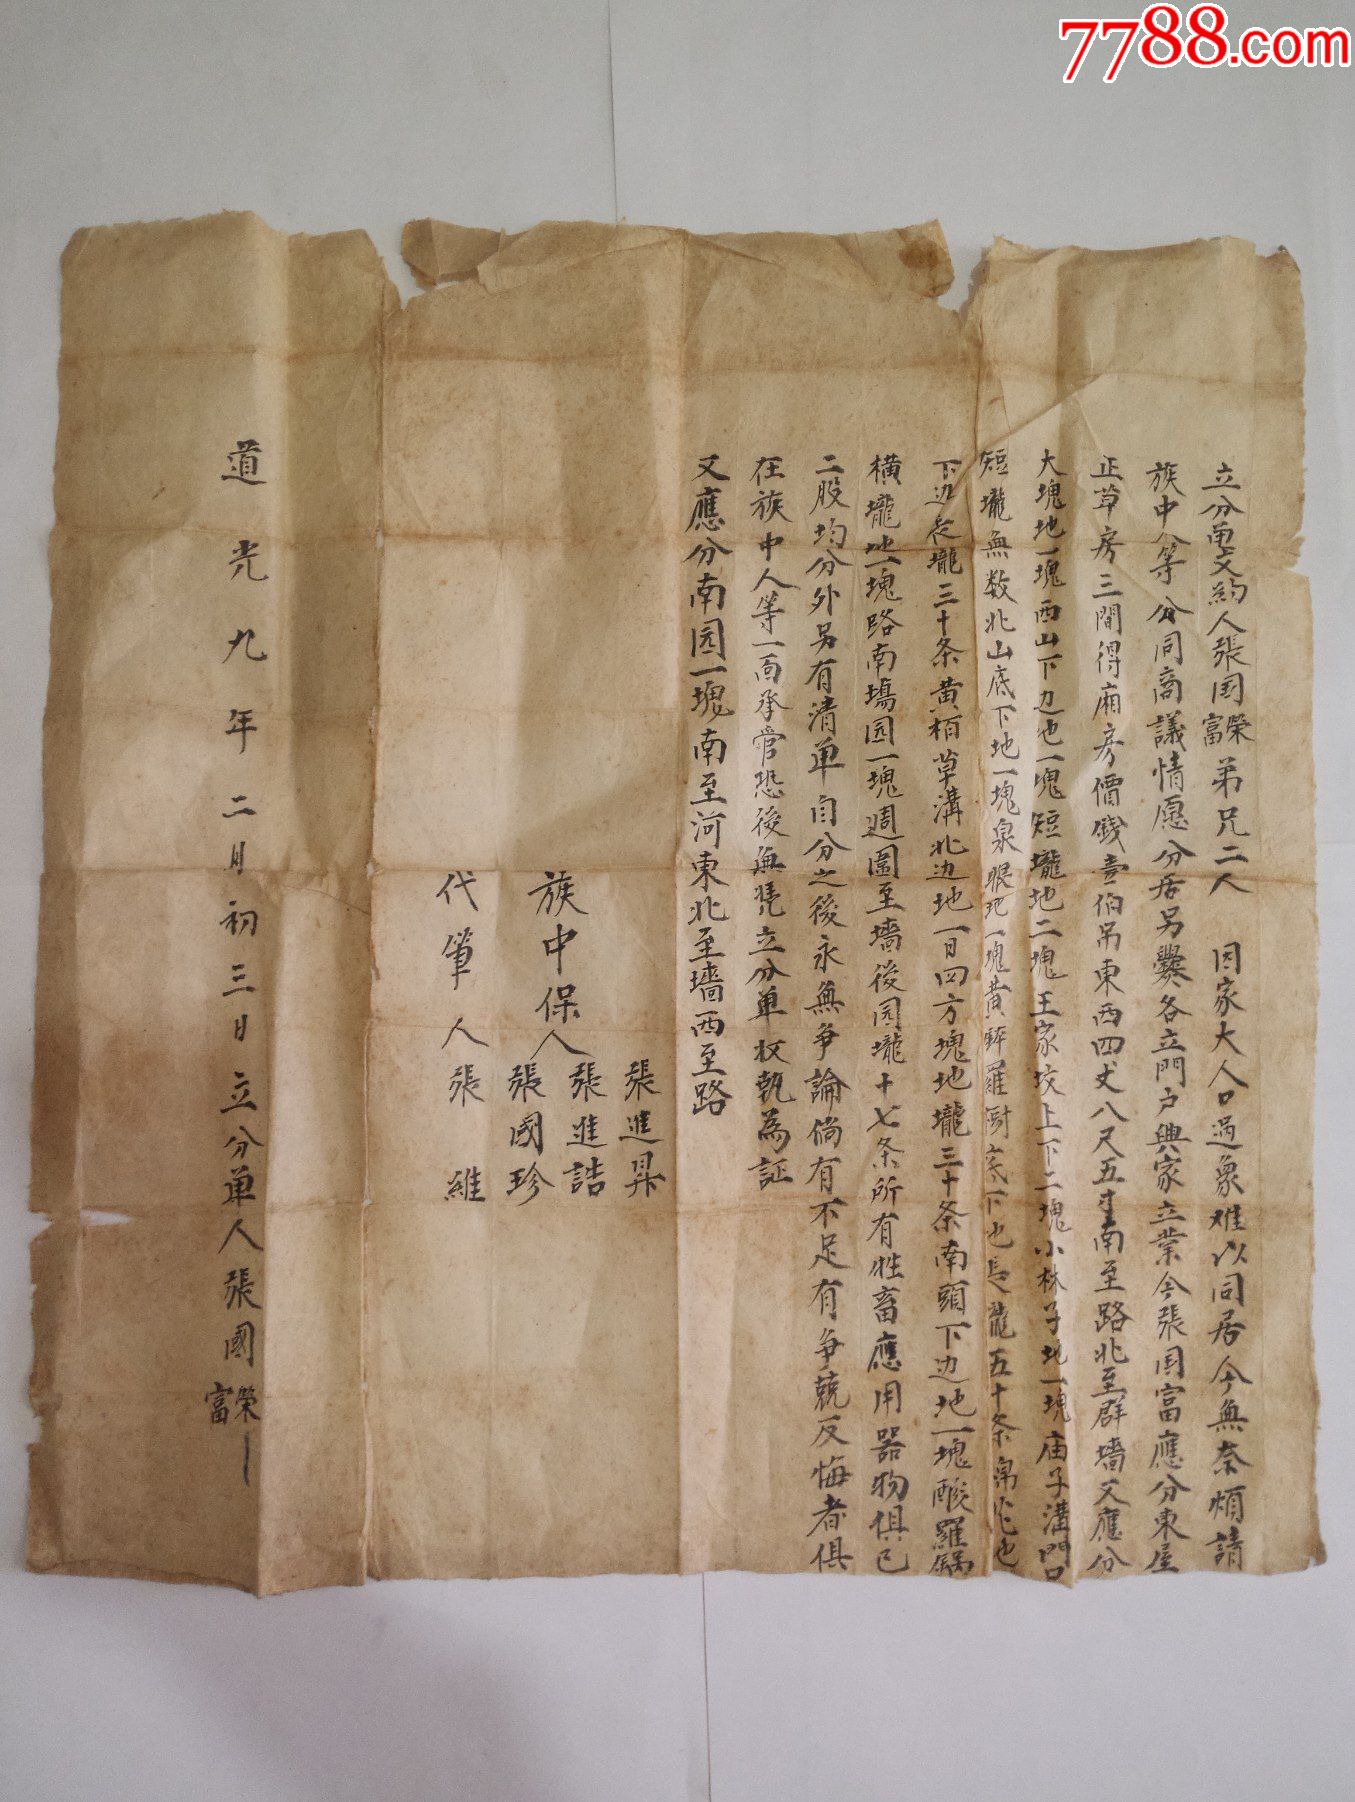 7788.com
立分單文約人張国榮富弟兄二人 因家大人口過象难以同居今無奈煩請
族中人等 分同商議情愿分居另爨各立門户興家立業今張国富應分東屋
正草房三間得廂房價錢壹伯吊東西四丈八尺五寸南至路北至群墻又應分
大塊地一塊西山下边地一塊短壠地二塊王家坟上下二塊小林子地一塊庙子溝門口
短壠無数北山底下地一塊泉眼地一塊黄 羅 底下地長壠五十条 地
下边長壠三十条黄栢草溝北边地一日四方塊地壠三十条南頭下边地一塊酸羅鍋
横壠地一塊路南塲园一塊週圍至墻後园壠十七条所有牲畜應用器物俱已
二股均分外另有清单自分之後永無争論倘有不足有争競反悔者俱
在族中人等一面承管恐後無凭立分单 执為証
又應分南园一塊南至河東北至墻西至路
族中保人 張進昇 張進誥 張國珍
代筆人張 維
道光九年二月初三日立分单人張國榮富